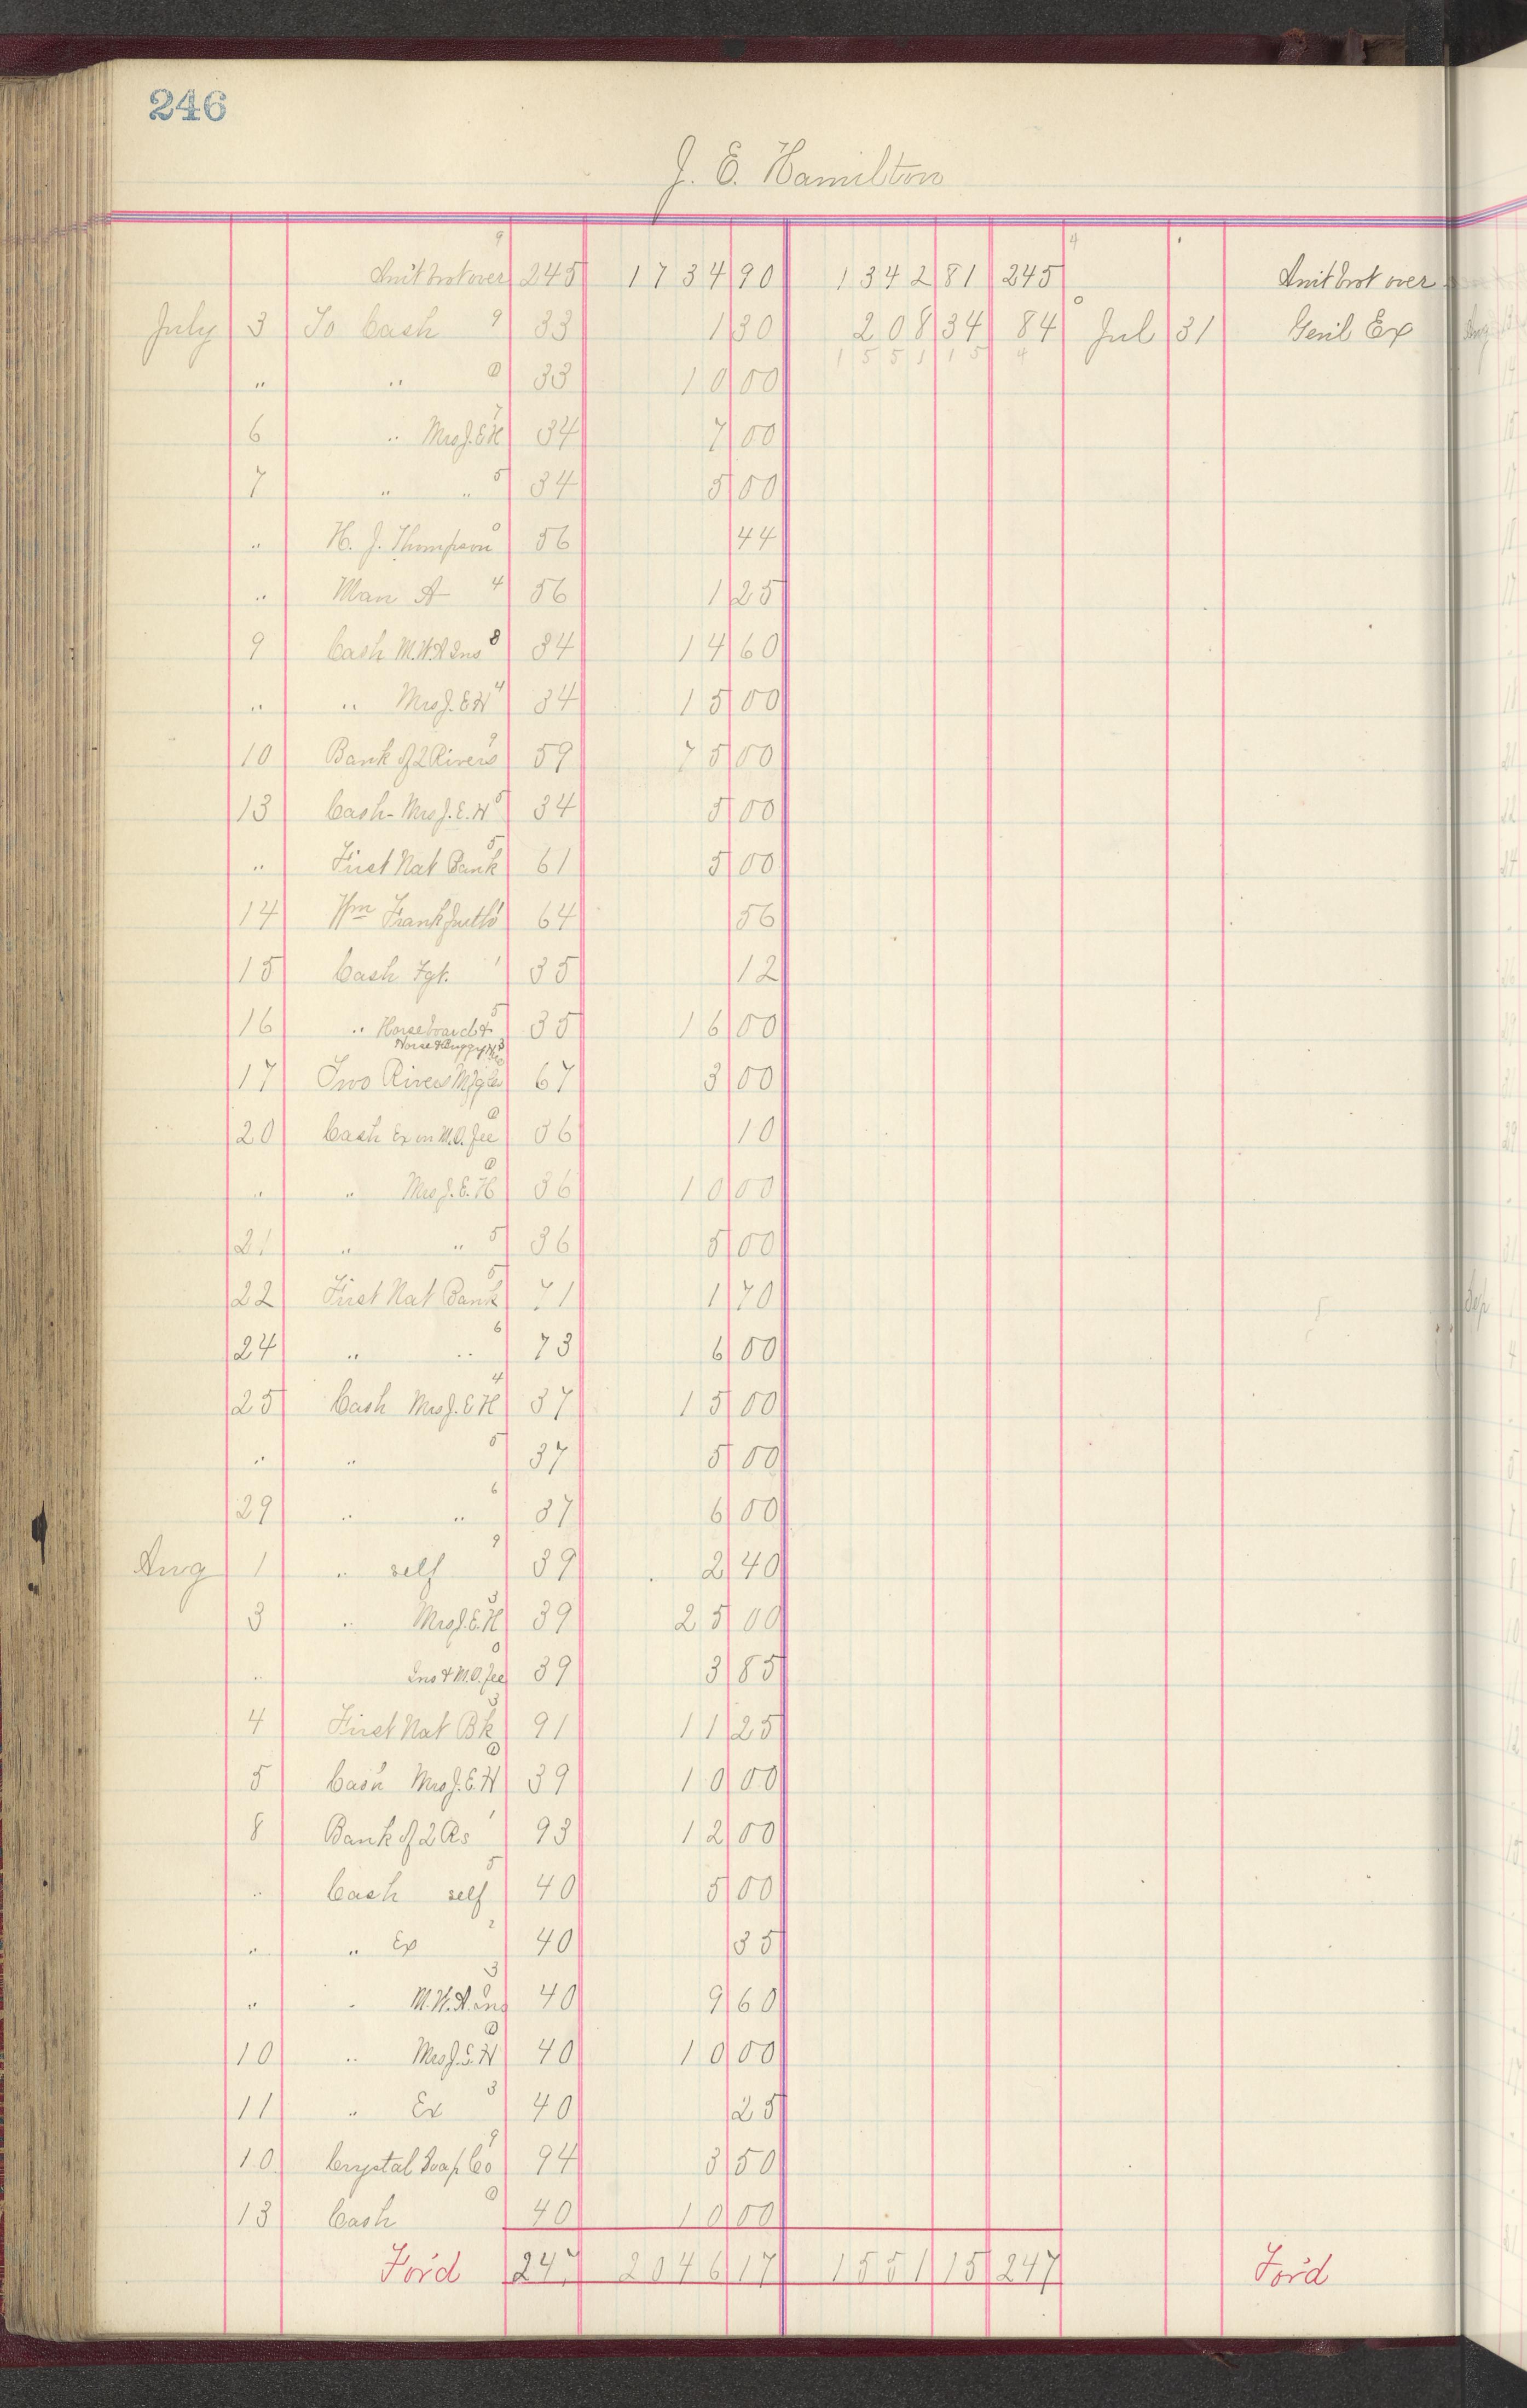 246
J. E. Hamilton
9 4
Amt brot over 245 1734 90 1342 81 245 Amt brot over
July 3 To Cash 9 33 1 30 208 34 84 0 Jul 31 Genl Ex
1551 15 4
" " 0 33 10 00
6 " Mrs J. E. H 7 34 7 00
7 " " 5 34 5 00
" H. J. Thompson 0 56 44
" Man A 4 56 1 25
9 Cash M.W.A Ins 8 34 14 60
" " Mrs J. E H 4 34 15 00
10 Bank of 2 Rivers 9 59 75 00
13 Cash - Mrs J. E. H 5 34 5 00
" First Nat Bank 5 61 5 00
14 Wm Frankfurth 1 64 56
15 Cash Fgt. 1 35 12
16 " Horseboard & 5 35 16 00
Horse & Buggy 3
17 Two Rivers Mfg Co 67 3 00
20 Cash Ex on M.O. fee 0 36 10
" " Mrs J. E. H 0 36 10 00
21 " " 5 36 5 00
22 First Nat Bank 5 71 1 70
24 " " 6 73 6 00
25 Cash Mrs J. E H 4 37 15 00
" " 5 37 5 00
29 " " 6 37 6 00
Aug 1 " self 9 39 2 40
3 " Mrs J. E. H 3 39 25 00
" Ins & M.O. fee 0 39 3 85
4 First Nat Bk 3 91 11 25
5 Cash Mrs J. E. H 0 39 10 00
8 Bank of 2 Rs 1 93 12 00
" Cash self 5 40 5 00
" " Ex 2 40 35
" " M.W.A. ins 3 40 9 60
10 " Mrs J. E. H 0 40 10 00
11 " Ex 3 40 25
10 Crystal Soap Co 9 94 3 50
13 Cash 0 40 10 00
For'd 247 2046 17 1551 15 247 For'd